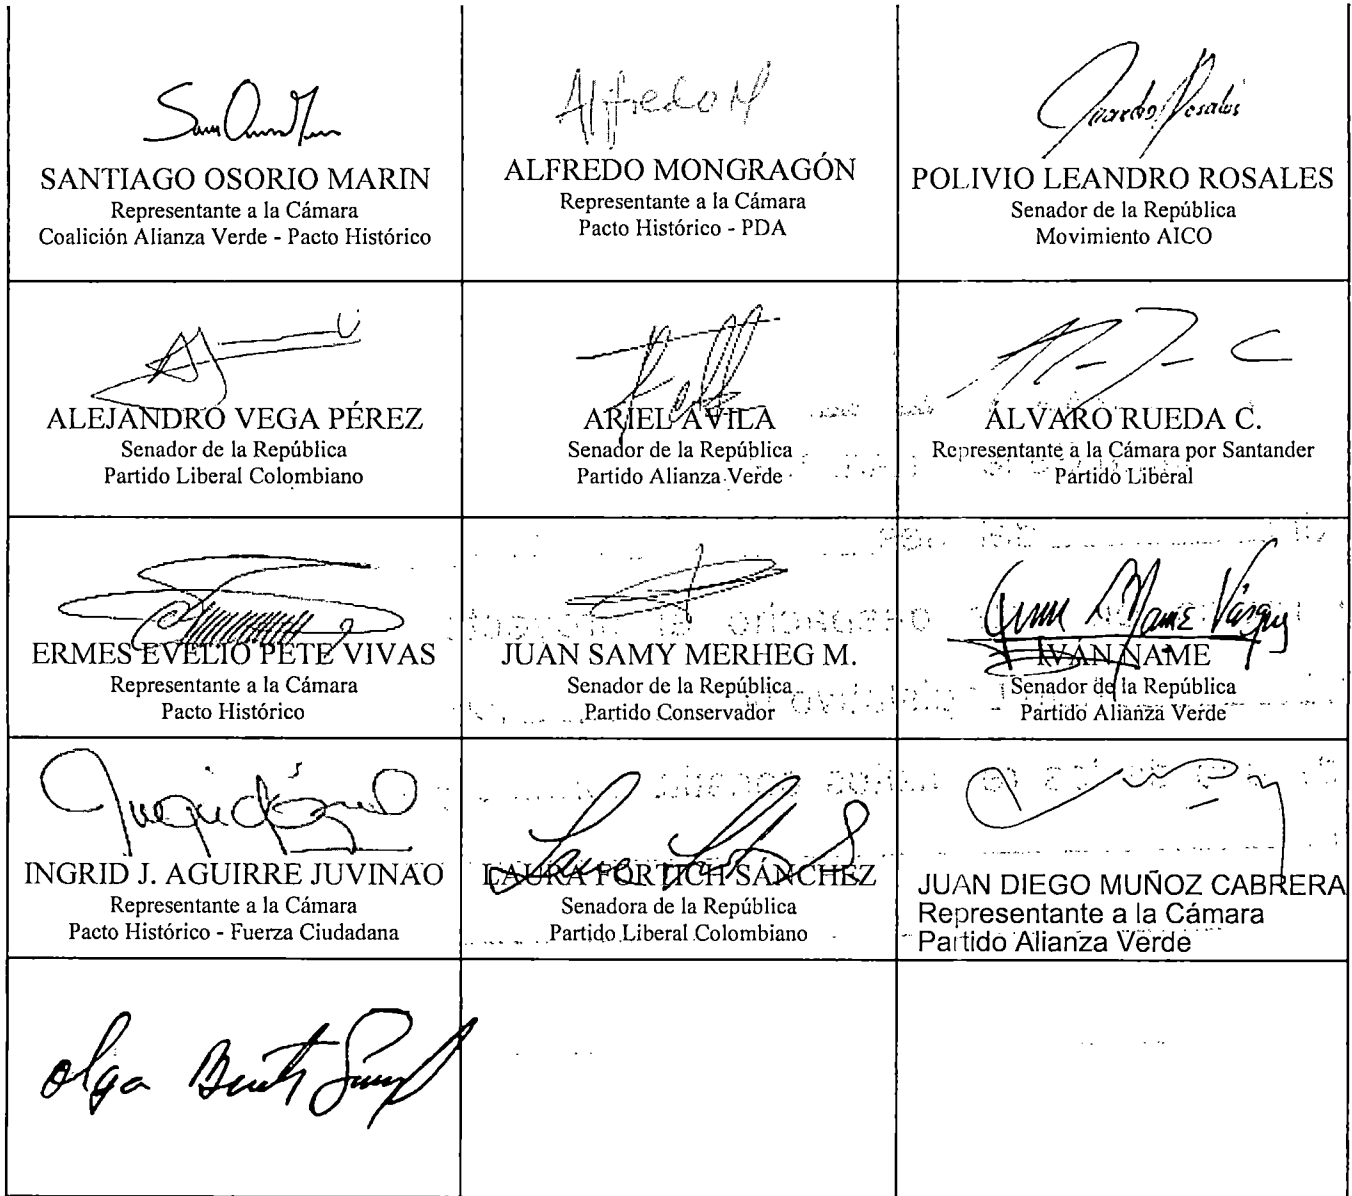 Alfredo M
SANTIAGO OSORIO MARIN
Representante a la Cámara
Coalición Alianza Verde - Pacto Histórico
ALFREDO MONGRAGÓN
Representante a la Cámara
Pacto Histórico - PDA
POLIVIO LEANDRO ROSALES
Senador de la República
Movimiento AICO
ALEJANDRO VEGA PÉREZ
Senador de la República
Partido Liberal Colombiano
ARIEL AVILA
Senador de la República
Partido Alianza Verde
ÁLVARO RUEDA C.
Representante a la Cámara por Santander
Partido Liberal
ERMES EVELIO PETE VIVAS
Representante a la Cámara
Pacto Histórico
JUAN SAMY MERHEG M.
Senador de la República
Partido Conservador
IVÁN NAME
Senador de la República
Partido Alianza Verde
INGRID J. AGUIRRE JUVINAO
Representante a la Cámara
Pacto Histórico - Fuerza Ciudadana
LAURA FORTICH SÁNCHEZ
Senadora de la República
Partido Liberal Colombiano
JUAN DIEGO MUÑOZ CABRERA
Representante a la Cámara
Partido Alianza Verde
Olga